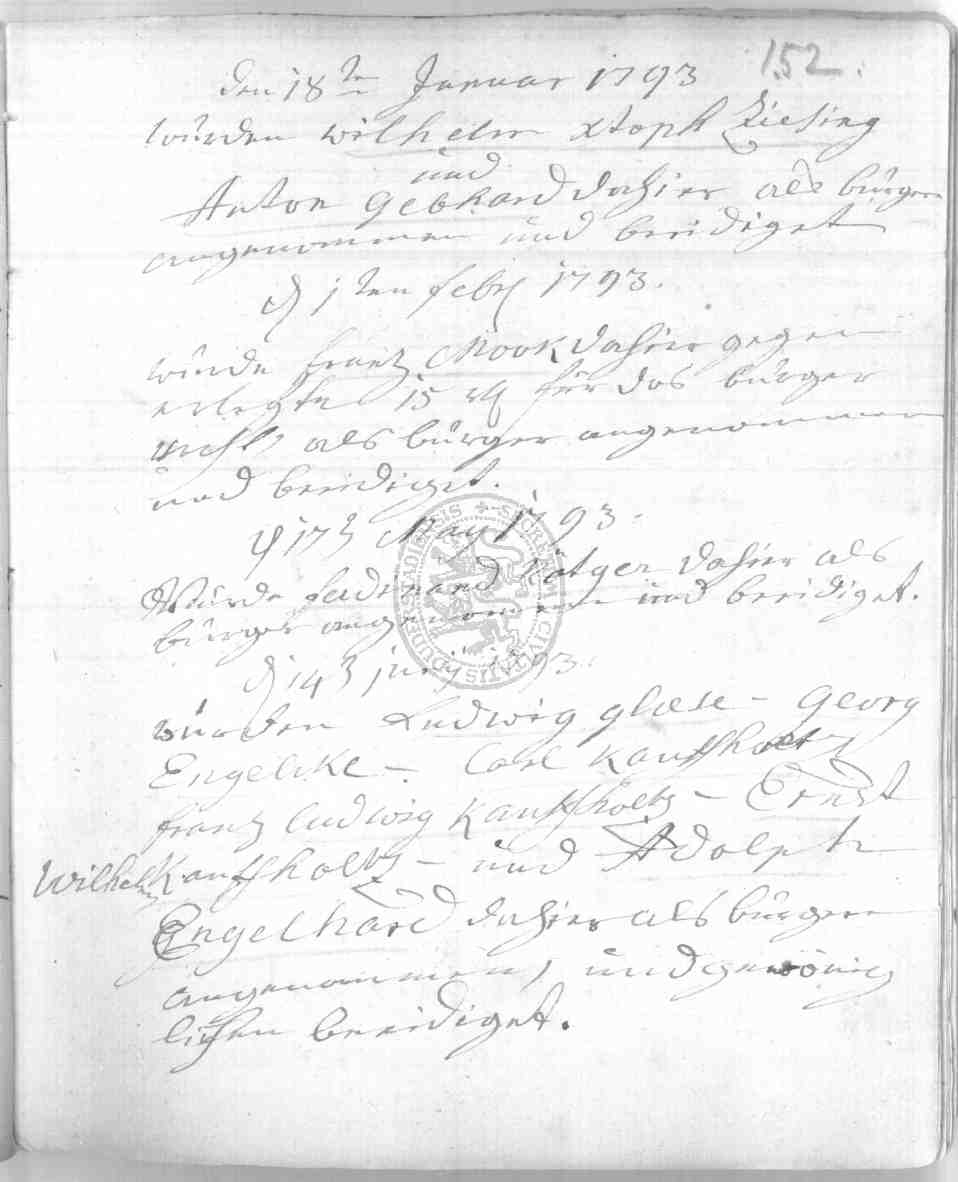 152.
den 18ten Januar 1793
wurden wilhelm xtoph Ziesing
und
Anton Gebhard dahier als bürger
angenommen und beeidiget
d 1ten febr 1793.
wurde frantz Mook dahier gegen
erlegte 15 für das bürger
recht als bürger angenommen
und beeidiget.
d 17t May 1793.
Wurde ferdinand Rötger dahier als
bürger angenommen und beeidiget.
d 14t juny 1793.
wurden Ludwig glaese - Georg
Engelike - Carl Kauffholtz
frantz ludwig Kauffholtz - Ernst
Wilhelm Kauffholtz - und Adolph
Engelhard dahier als bürger
angenommen, und gewönig
lichen beeidiget.
SECRETUM CIVITATIS DUDERSTADIENSIS